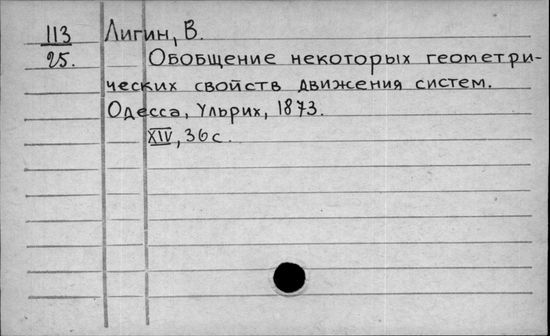 113 Лигин, В.
25. Обобщение некоторых геометри-
ческих свойств движения систем.
Одесса, Ульрих, 1873.
XIV, 36 с.